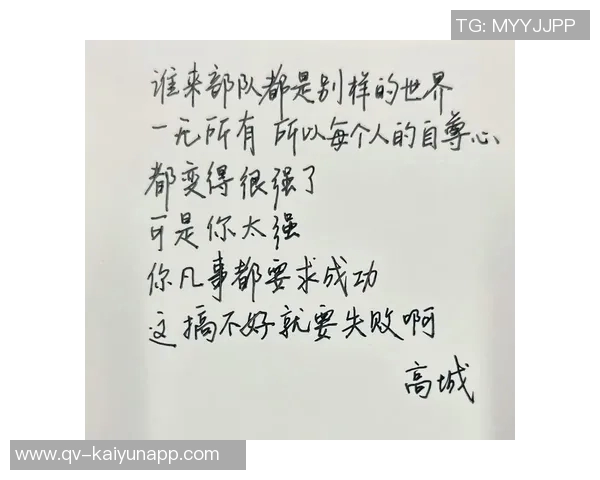 TG: MYYJJPP
谁来部队都是别样的世界
一无所有 所以每个人的自尊心
都变得很强了
可是你太强
你凡事都要求成功
这搞不好就要失败啊
高城
www.qv-kaiyunapp.com